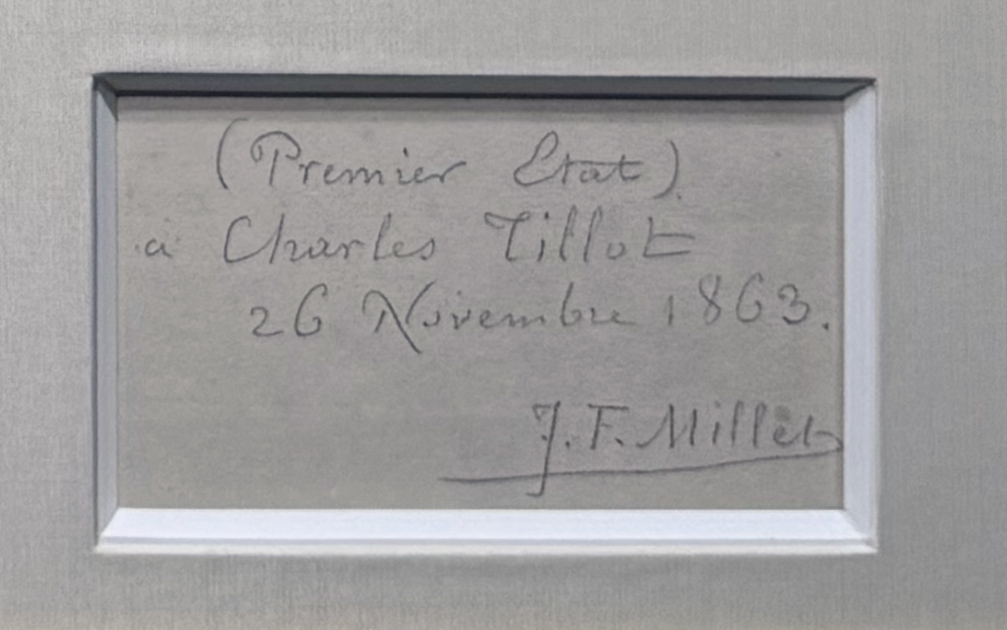 (Premier Etat)
à Charles Tillot
26 Novembre 1863.
J. F. Millet